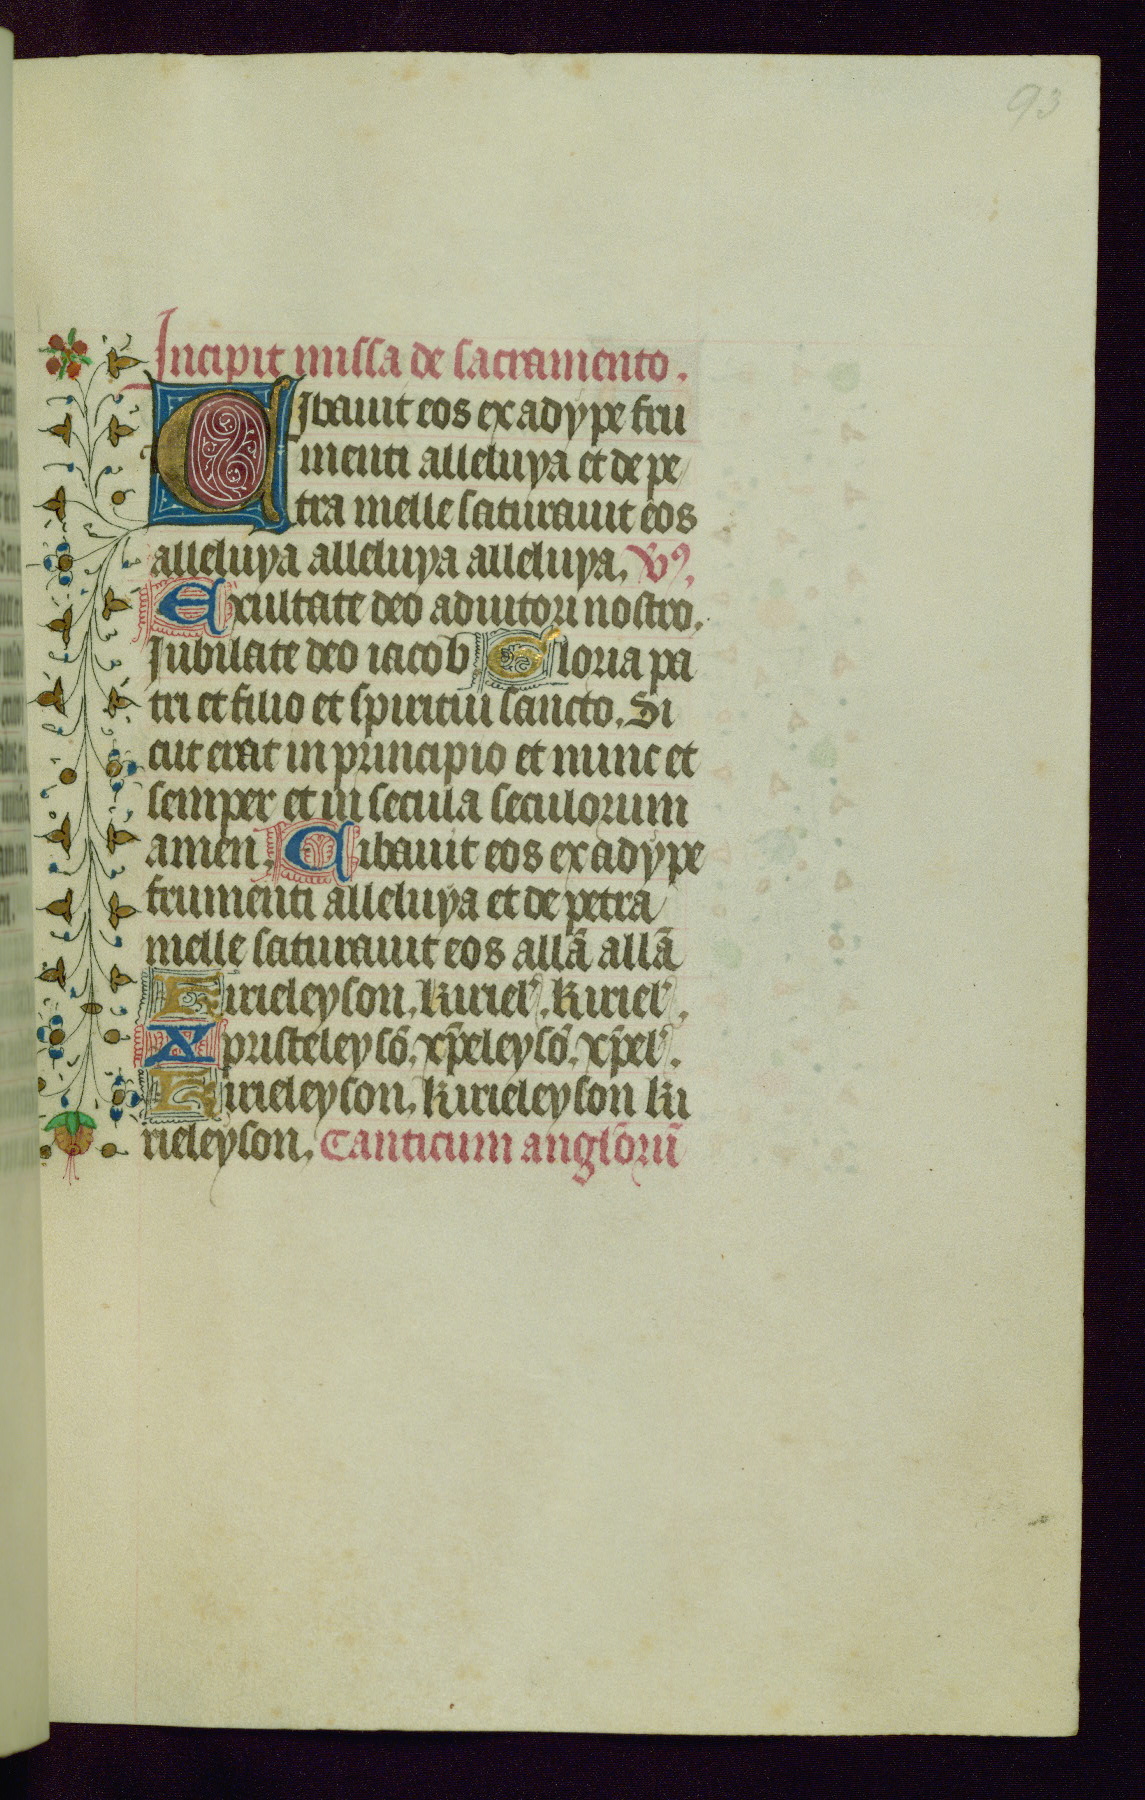 93
Incipit missa de sacramento.
Cibauit eos ex adype fru
menti alleluya et de pe
tra melle saturauit eos
alleluya alleluya alleluya. V9.
Exultate deo adiutori nostro.
Iubilate deo iacob Gloria pa
tri et filio et spiritui sancto. Si
cut erat in principio et nunc et
semper et in secula seculorum
amen. Cibauit eos ex adype
frumenti alleluya et de petra
melle saturauit eos allā allā
Kirieleyson. kiriel'. kiriel'.
Xpristeleysō. xp̄eleysō. xp̄el'.
Kirieleyson. kirieleyson ki
rieleyson. Canticum anglorū